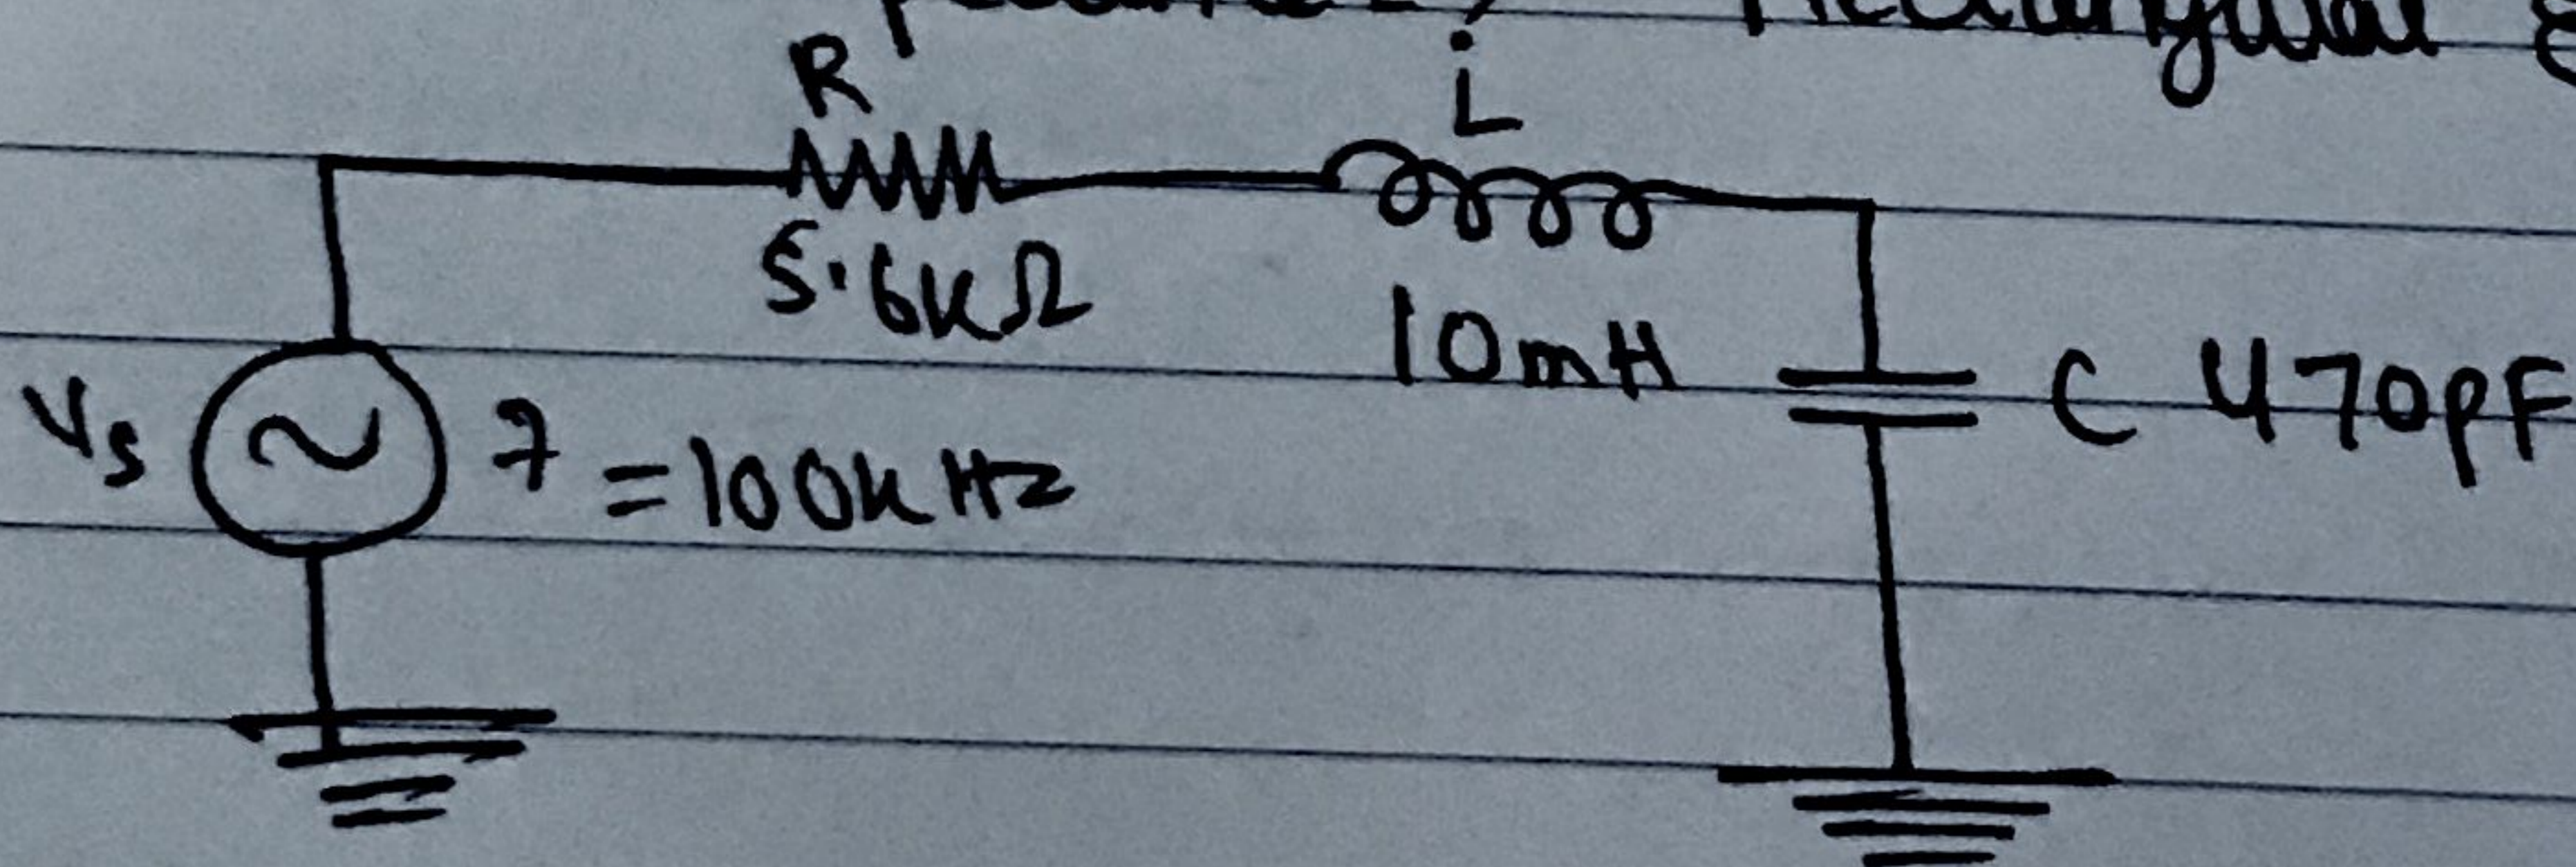 R
L
5.6kΩ
10mH
Vs
f = 100kHz
C 470pF